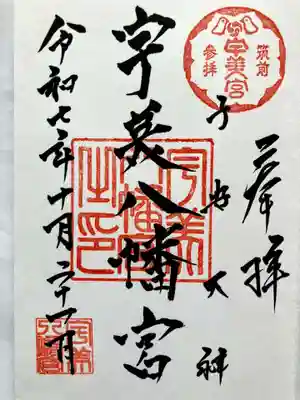 奉拝
筑前
宇美宮
参拝
子安大神
宇美八幡宮
宇美
八幡宮
之印
令和七年十月二十一日